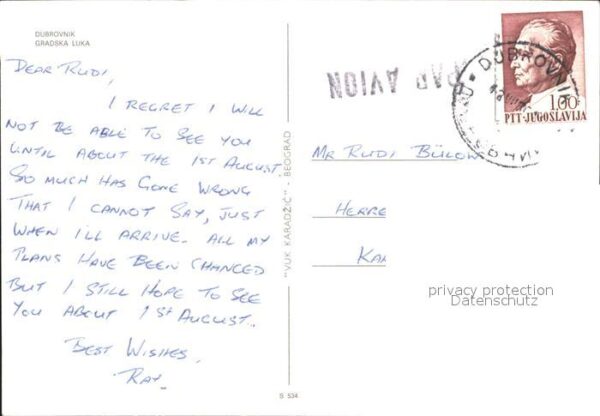 DUBROVNIK
GRADSKA LUKA
DEAR RUDI,
I REGRET I WILL
NOT BE ABLE TO SEE YOU
UNTIL ABOUT THE 1ST AUGUST
SO MUCH HAS GONE WRONG
THAT I CANNOT SAY, JUST
WHEN I'LL ARRIVE. ALL MY
PLANS HAVE BEEN CHANGED
BUT I STILL HOPE TO SEE
YOU ABOUT 1ST AUGUST.
BEST WISHES,
RAY.
"VUK KARADŽIĆ" - BEOGRAD
S 534
PAR AVION
DUBROVNIK
1.00
PTT-JUGOSLAVIJA
MR RUDI BÜLOW
HERRE
KAM
privacy protection
Datenschutz